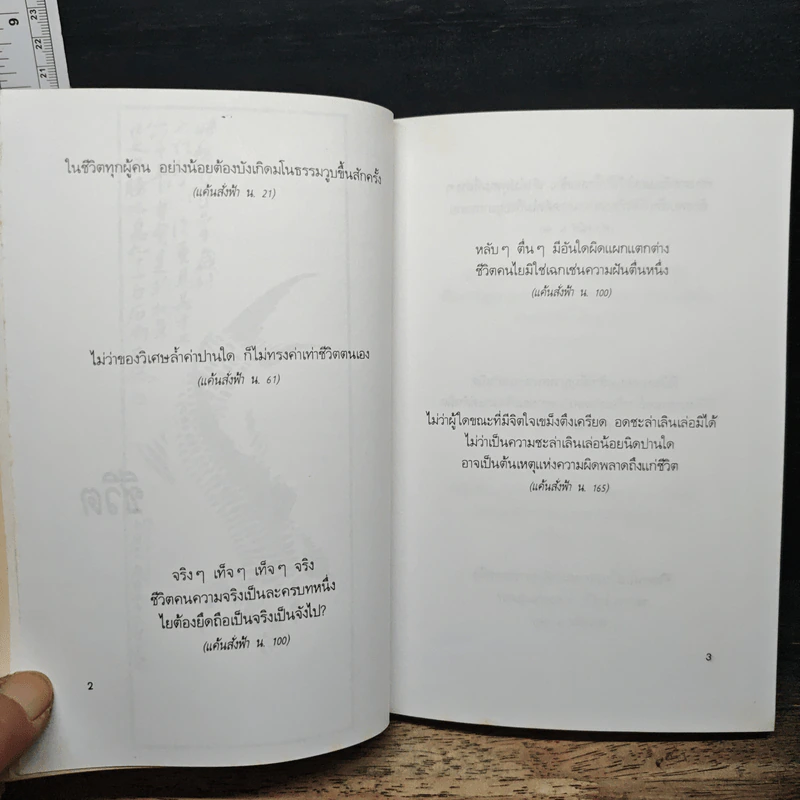 9
23
22
21
ในชีวิตทุกผู้คน อย่างน้อยต้องบังเกิดมโนธรรมวูบขึ้นสักครั้ง
(แค้นสั่งฟ้า น. 21)
ไม่ว่าของวิเศษล้ำค่าปานใด ก็ไม่ทรงค่าเท่าชีวิตตนเอง
(แค้นสั่งฟ้า น. 61)
จริงๆ เท็จๆ เท็จๆ จริง
ชีวิตคนความจริงเป็นละครบทหนึ่ง
ไยต้องยึดถือเป็นจริงเป็นจังไป?
(แค้นสั่งฟ้า น. 100)
2
หลับๆ ตื่นๆ มีอันใดผิดแผกแตกต่าง
ชีวิตคนไยมิใช่เฉกเช่นความฝันตื่นหนึ่ง
(แค้นสั่งฟ้า น. 100)
ไม่ว่าผู้ใดขณะที่มีจิตใจเขม็งตึงเครียด อดชะล่าเลินเล่อมิได้
ไม่ว่าเป็นความชะล่าเลินเล่อน้อยนิดปานใด
อาจเป็นต้นเหตุแห่งความผิดพลาดถึงแก่ชีวิต
(แค้นสั่งฟ้า น. 165)
3
ชีวิต